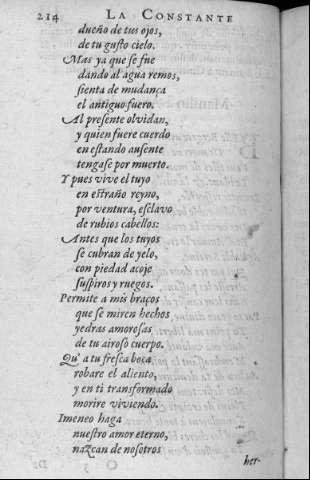 214 LA CONSTANTE
dueño de tus ojos,
de tu gusto cielo.
Mas ya que se fue
dando al agua remos,
sienta de mudança
el antiguo fuero.
Al presente olvidan,
y quien fuere cuerdo
en estando ausente
tengase por muerto.
Y pues vive el tuyo
en estraño reyno,
por ventura, esclavo
de rubios cabellos:
Antes que los tuyos
se cubran de yelo,
con piedad acoje
suspiros y ruegos.
Permite a mis braços
que se miren hechos
yedras amorosas
de tu airoso cuerpo.
Qu' a tu fresca boca
robare el aliento,
y en ti transformado
morire viviendo.
Imeneo haga
nuestro amor eterno,
nazcan de nosotros
her-